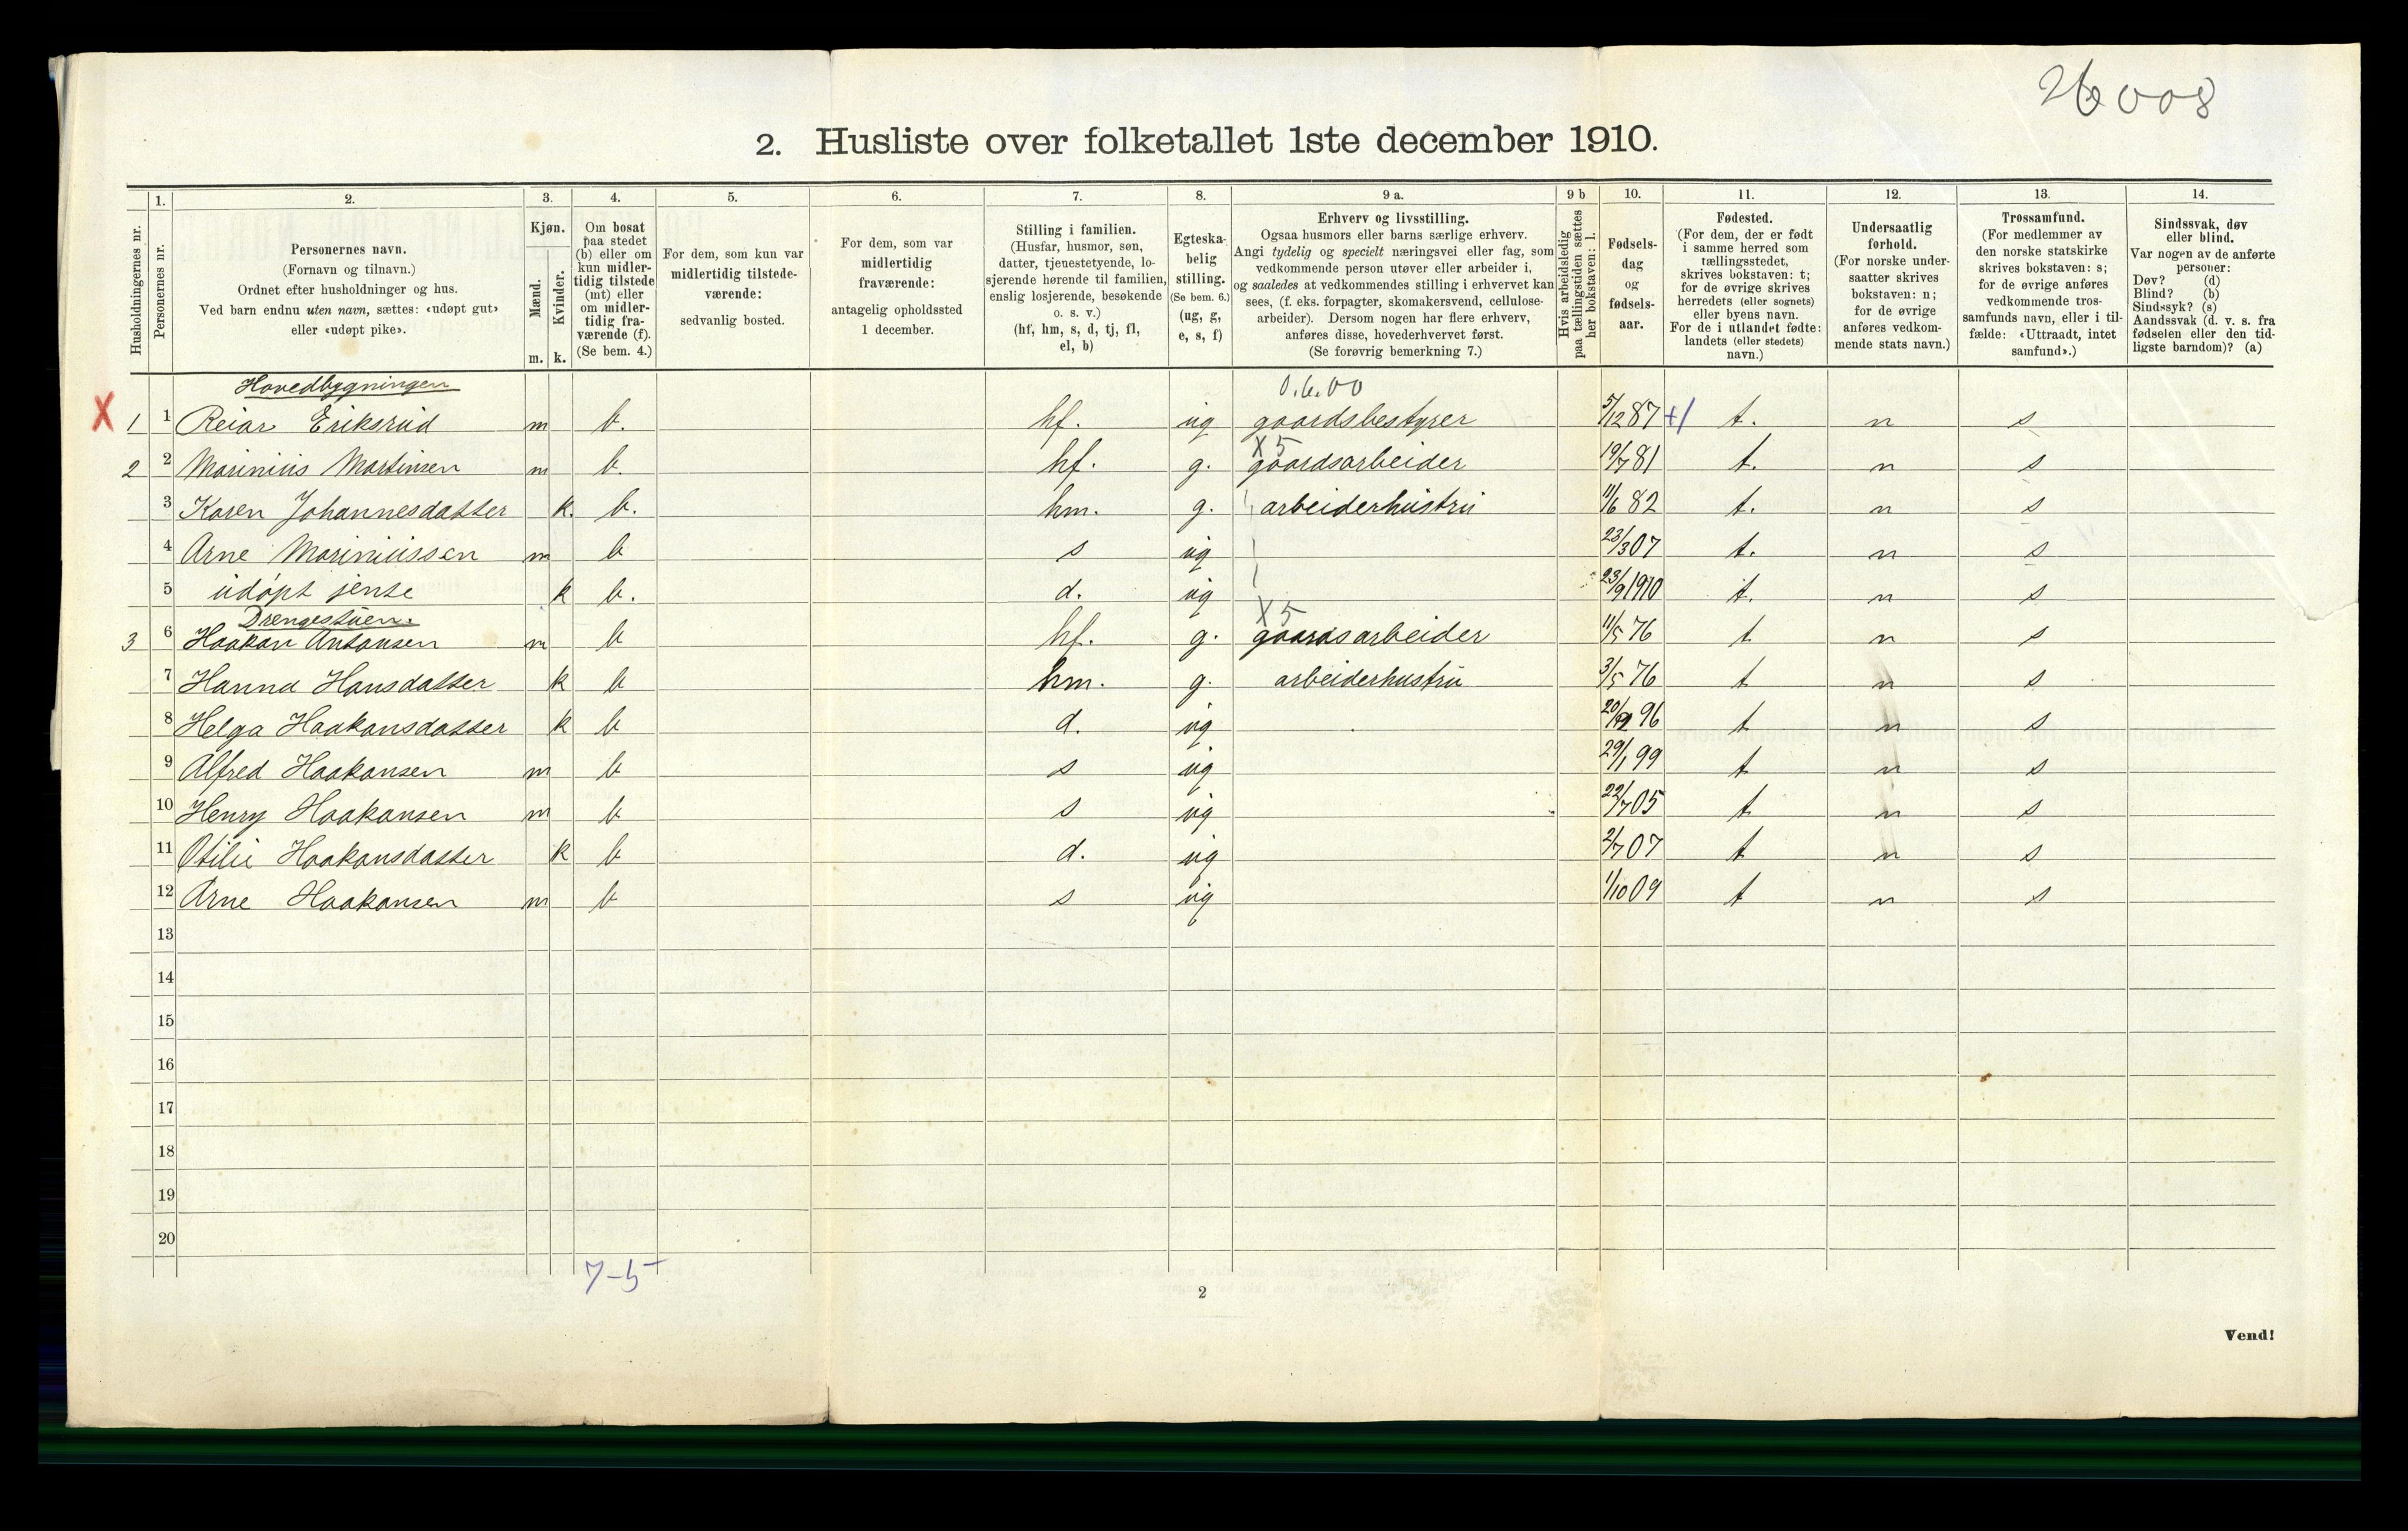 26008
2. Husliste over folketallet 1ste december 1910.
1. 2. 3. 4. 5. 6. 7. 8. 9 a. 9 b 10. 11. 12. 13. 14.
Husholdningernes nr.
Personernes nr.
Personernes navn.
(Fornavn og tilnavn.)
Ordnet efter husholdninger og hus.
Ved barn endnu uten navn, sættes: «udøpt gut»
eller «udøpt pike».
Kjøn.
Mænd.
m.
Kvinder.
k.
Om bosat
paa stedet
(b) eller om
kun midler-
tidig tilstede
(mt) eller
om midler-
tidig fra-
værende (f).
(Se bem. 4.)
For dem, som kun var
midlertidig tilstede-
værende:
sedvanlig bosted.
For dem, som var
midlertidig
fraværende:
antagelig opholdssted
1 december.
Stilling i familien.
(Husfar, husmor, søn,
datter, tjenestetyende, lo-
sjerende hørende til familien,
enslig losjerende, besøkende
o. s. v.)
(hf, hm, s, d, tj, fl,
el, b)
Egteska-
belig
stilling.
(Se bem. 6.)
(ug, g,
e, s, f)
Erhverv og livsstilling.
Ogsaa husmors eller barns særlige erhverv.
Angi tydelig og specielt næringsvei eller fag, som
vedkommende person utøver eller arbeider i,
og saaledes at vedkommendes stilling i erhvervet kan
sees, (f. eks. forpagter, skomakersvend, cellulose-
arbeider). Dersom nogen har flere erhverv,
anføres disse, hovederhvervet først.
(Se forøvrig bemerkning 7.)
Hvis arbeidsledig
paa tællingstiden sættes
her bokstaven: l.
Fødsels-
dag
og
fødsels-
aar.
Fødested.
(For dem, der er født
i samme herred som
tællingsstedet,
skrives bokstaven: t;
for de øvrige skrives
herredets (eller sognets)
eller byens navn.
For de i utlandet fødte:
landets (eller stedets)
navn.)
Undersaatlig
forhold.
(For norske under-
saatter skrives
bokstaven: n;
for de øvrige
anføres vedkom-
mende stats navn.)
Trossamfund.
(For medlemmer av
den norske statskirke
skrives bokstaven: s;
for de øvrige anføres
vedkommende tros-
samfunds navn, eller i til-
fælde: «Uttraadt, intet
samfund».)
Sindssvak, døv
eller blind.
Var nogen av de anførte
personer:
Døv? (d)
Blind? (b)
Sindssyk? (s)
Aandssvak (d. v. s. fra
fødselen eller den tid-
ligste barndom)? (a)
Hovedbygningen 0.6.00
X 1 1 Reiar Eriksrud m b. hf. ug gaardsbestyrer 5/12 87 +1 t. n s
X 5
2 2 Marinius Martinsen m b. hf. g. gaardsarbeider 19/7 81 t. n s
3 Karen Johannesdatter k. b. hm. g. arbeiderhustru 11/6 82 t. n s
4 Arne Mariniussen m b s ug 23/3 07 t. n s
5 udøpt jente k b. d. ug 23/9 1910 t. n s
Drengestuen. X 5
3 6 Haakon Antonsen m b hf. g. gaardsarbeider 11/5 76 t n s
7 Hanna Hansdatter k b hm. g. arbeiderhustru 3/5 76 t n s
8 Helga Haakonsdatter k b d. ug 96 t n s
9 Alfred Haakonsen m b s ug 29/1 99 t n s
10 Henry Haakonsen m b s ug 22/7 05 t n s
11 Otilie Haakonsdatter k b d. ug 2/7 07 t n s
12 Arne Haakonsen m b s ug 1/10 09 t n s
13
14
15
16
17
18
19
20
7-5
2
Vend!